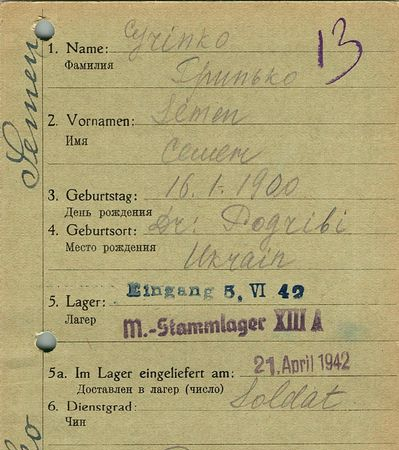 13
Semen
ko
1. Name: Grinko
Фамилия Гринько
2. Vornamen: Semen
Имя Семен
3. Geburtstag: 16.1.1900
День рождения
4. Geburtsort: Dr: Pogribi
Место рождения Ukrain
Eingang 5. VI 42
5. Lager:
Лагер M.-Stammlager XIII A
5a. Im Lager eingeliefert am: 21. April 1942
Доставлен в лагер (число)
6. Dienstgrad: Soldat
Чин